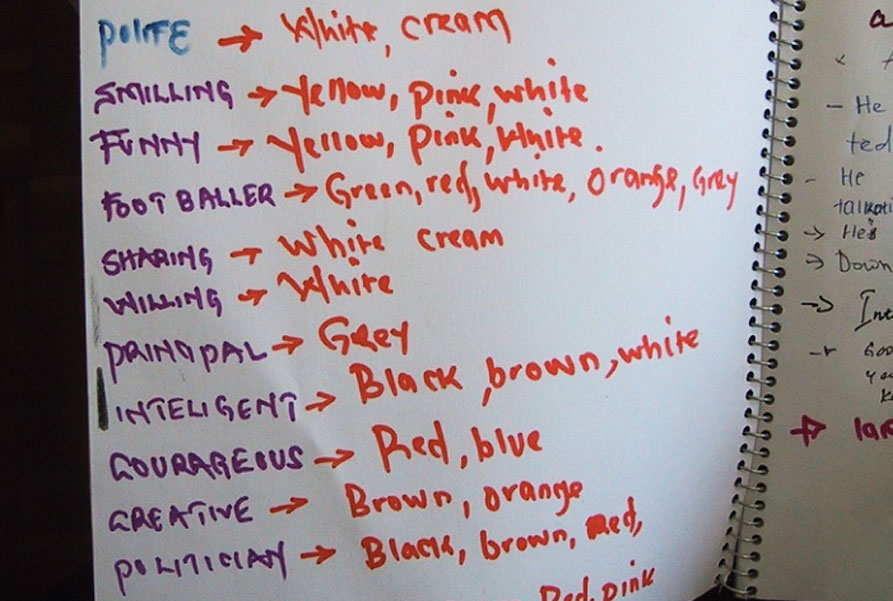 POLITE → White, cream
SMILLING → Yellow, pink, white
FUNNY → Yellow, pink, white.
FOOT BALLER → Green, red, white, Orange, Grey
SHARING → White cream
WILLING → White
PRINCIPAL → Grey
INTELIGENT → Black, brown, white
COURAGEOUS → Red, blue
CREATIVE → Brown, orange
POLITICIAN → Black, brown, Red,
Red, pink
- He
ted
- He
→ He's
→ Down